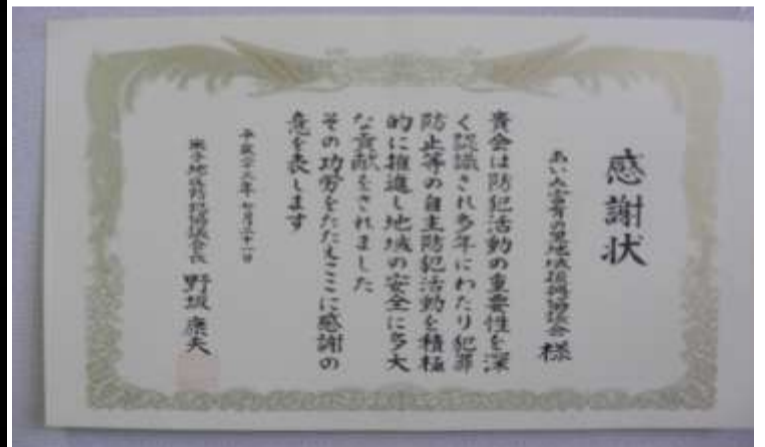 感謝状
地域振興協議会 様
貴会は防犯活動の重要性を深
く認識され多年にわたり犯罪
防止等の自主防犯活動を積極
的に推進し地域の安全に多大
な貢献をされました
その功労をたたえここに感謝の
意を表します
平成二十三年七月二十一日
米子地区防犯協議会長 野坂康夫